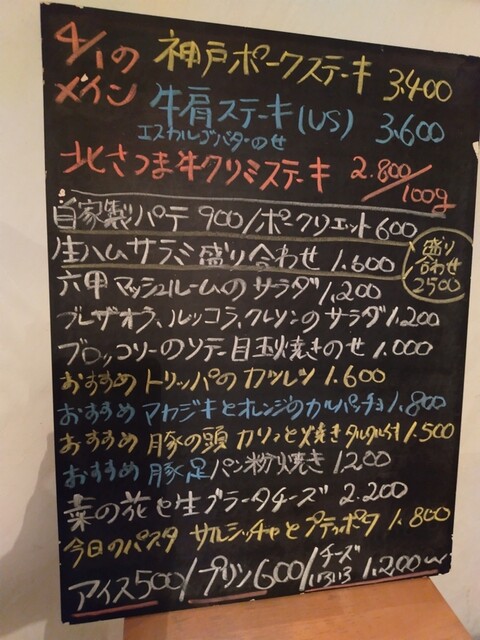 4/1の
メイン
神戸ポークステーキ 3.400
牛肩ステーキ(US) 3.600
エスカルゴバターのせ
北さつま牛クリミステーキ 2.800/100g
自家製パテ 900/ポークリエット600
生ハムサラミ盛り合わせ 1.600
盛り
合わせ
2500
六甲マッシュルームのサラダ 1,200
ブレザオラ、ルッコラ、クレソンのサラダ 1.200
ブロッコリーのソテー目玉焼きのせ 1.000
おすすめ トリッパのカツレツ 1.600
おすすめ マカジキとオレンジのカルパッチョ 1.800
おすすめ 豚の頭 カリッと焼きタルタル付 1.500
おすすめ 豚足パン粉焼き 1200
菜の花と生ブラータチーズ 2.200
今日のパスタ サルシッチャとプティポワ 1.800
アイス500/プリン600/チーズ
いろいろ 1,200〜